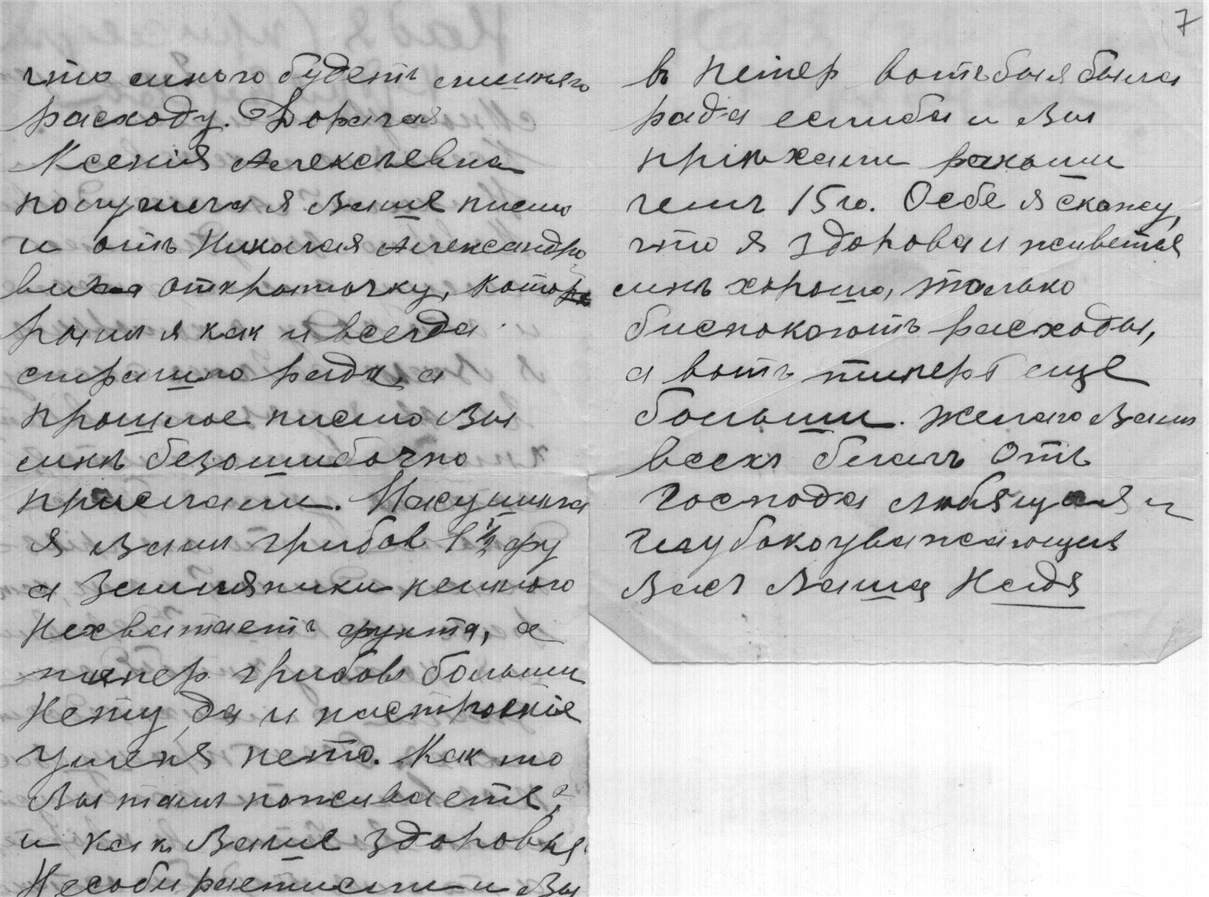 что много будеть лишняго
расходу. Дорагая
Ксенія Алексеевна
получила я Ваше писмо
и отъ Николая Александро
вича открыточку, котор
рым я как и всегда
страшно рада, а
прошлое писмо Вы
мнѣ безошибочно
прислали. Насушила
я Вам грибов 1 1/2 фу
а Земляники немного
Нехватаеть фунта, а
типер грибовъ больши
Нету, да и настроенія
уменя нето. Как то
Вы там поживаете?
и как Ваше здоровье
Несобираетисли и Вы
7
в Питер вотъбыя была
рада еслибы и Вы
пріѣхали раньши
чем 15го. Осебе я скажу,
что я здорова и живется
мнѣ хорошо, только
биспокоють расходы,
а вотъ типерь еще
больши. Желаю Вам
всехъ благъ Отъ
Господа любящая и
глубокоуважающия
Васъ Ваша Надя